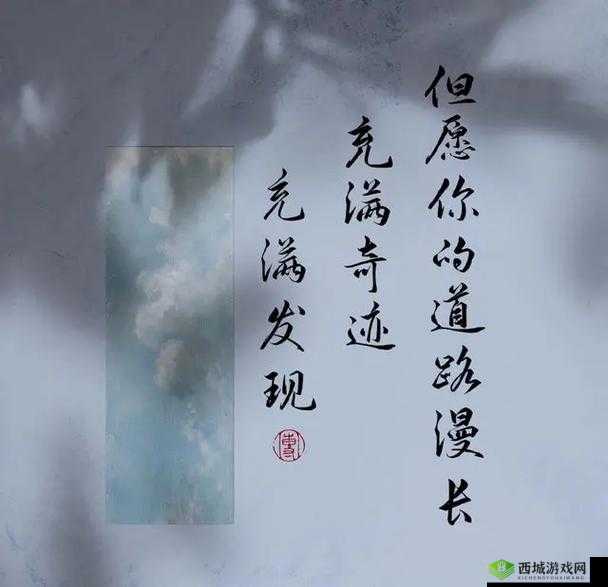 但愿你的道路漫长
充满奇迹
充满发现
西城游戏网
XICHENGYOUXIWANG